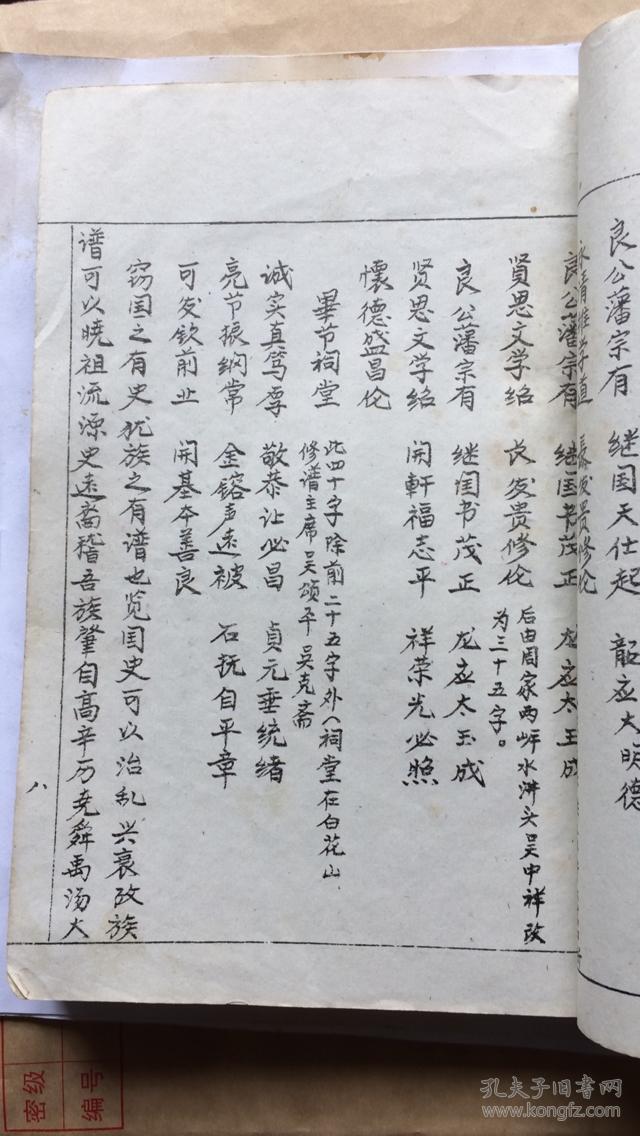 良公藩宗有　继国天仕起　韶应大明德
良公藩宗有　继国书茂正　龙应太玉成
贤思文学绍　长发贵修伦
后由周家两岍水洴头吴中祥改
为三十五字。
良公藩宗有　继国书茂正　龙应太玉成
贤思文学绍　開軒福志平　祥荣光必照
懷德盛昌伦
畢节祠堂
此四十字除前二十五字外（祠堂在白花山
修谱主席吴颂平吴克斋
诚实真笃厚　敬恭让必昌　貞元垂统绪
亮节振纲常　金镕声远被　石抚自平章
可发钦前业　開基本善良
窃国之有史犹族之有谱也览国史可以治乱兴衰改族
谱可以晓祖流源史远啇稽吾族肇自高辛历尧舜禹汤大
八
密级
编号
孔夫子旧书网
www.kongfz.com